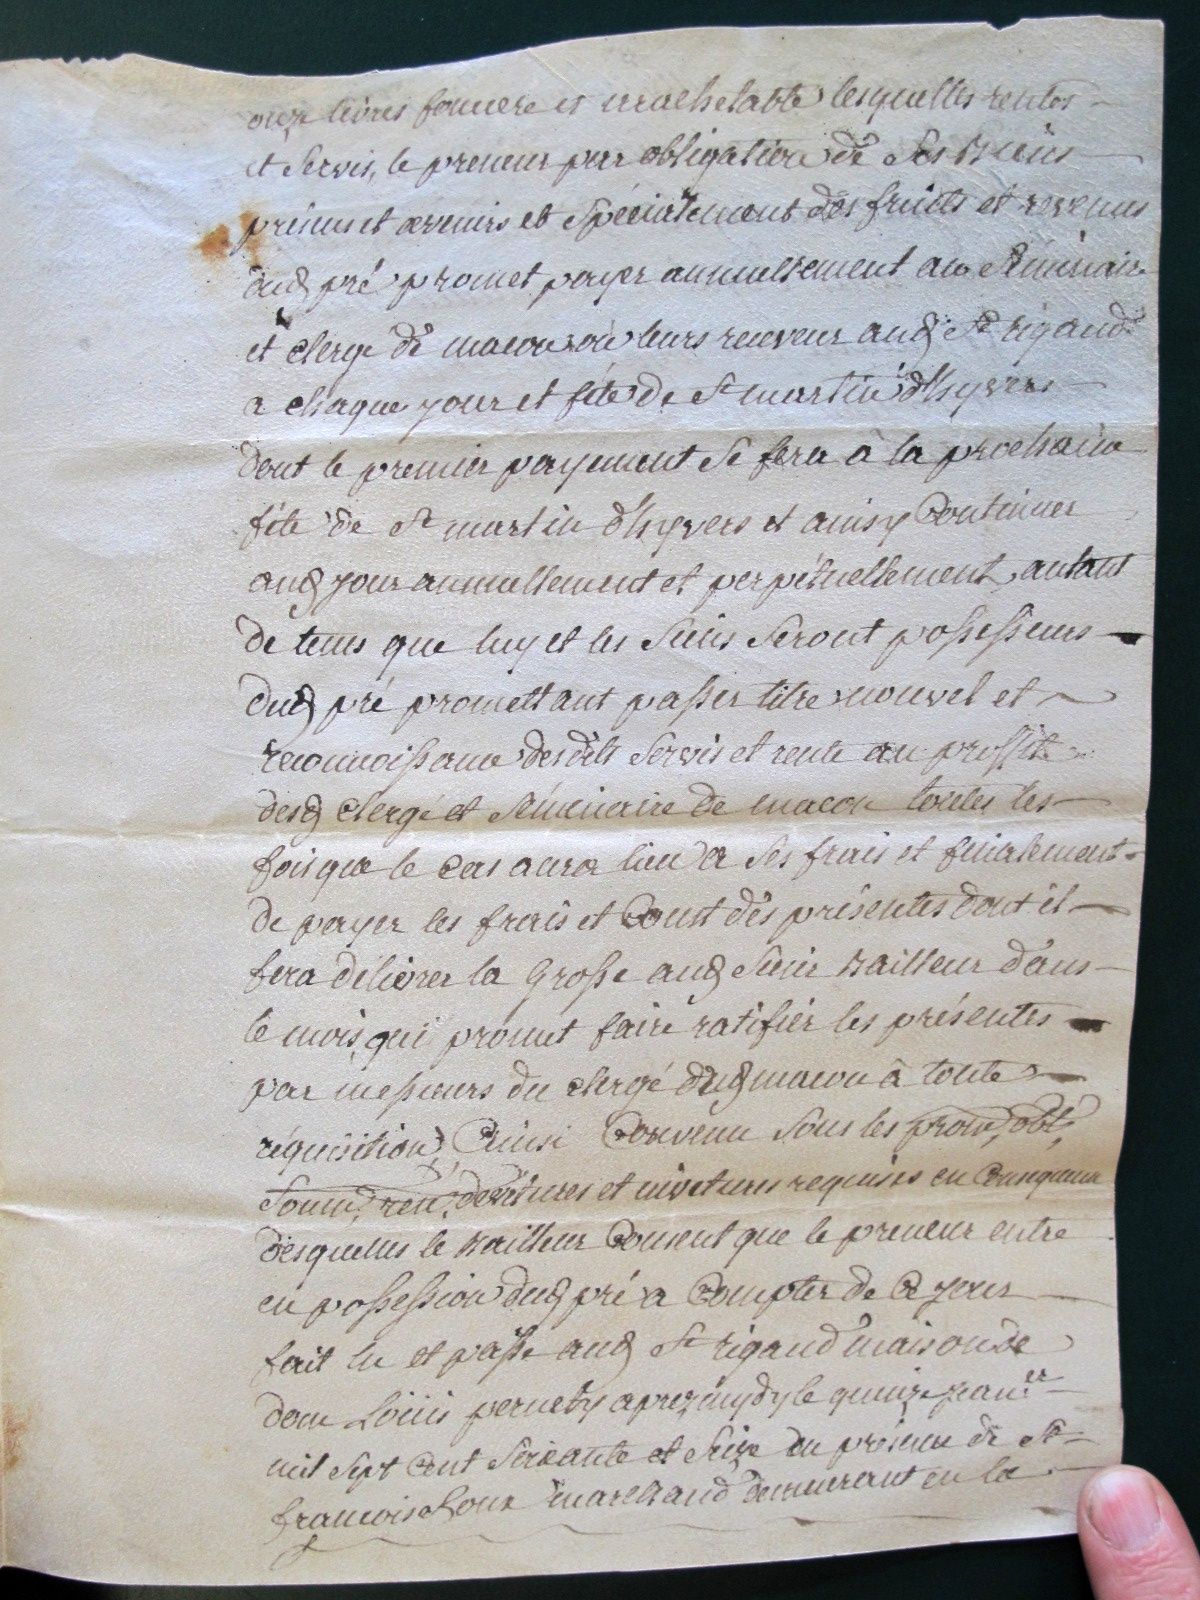 onze livres fonciere et irrachetable lesquelles rentes
et servis, le preneur par obligation de ses biens
présens et avenirs et spécialement des fruits et revenus
dud pré promet payer annuellement au séminaire
et clergé de macon ou leurs receveur aud St rigaud
a chaque jour et féte de St martin d'hyvers
dont le premier payement se fera à la prochaine
féte de St martin d'hyvers et ainsy continuer
aud jour annuellement et perpétuellement, autant
de tems que luy et les siens seront possesseurs
dud pré promettant passer titre nouvel et
reconnoissance desdits servis et rente au proffit
desd clergé et séminaire de macon toutes les
fois que le cas aura lieu a ses frais et finalement
de payer les frais et coust des présentes dont il
fera délivrer la grosse aud sieur bailleur dans
le mois, qui promet faire ratifier les présentes
par messieurs du clergé dud macon à toute
réquisition, Ainsi convenu sous les prom, obl,
soum, ren, devétures et invétures requises en consequence
desquelles le bailleur consent que le preneur entre
en possession dud pré a compter de ce jour
fait lu et passé aud St rigaud maison de
dom Louis pernety aprez mydy le quinze janer
mil sept cent soixante et seize en présence de Sr
francois marchand demeurant en la